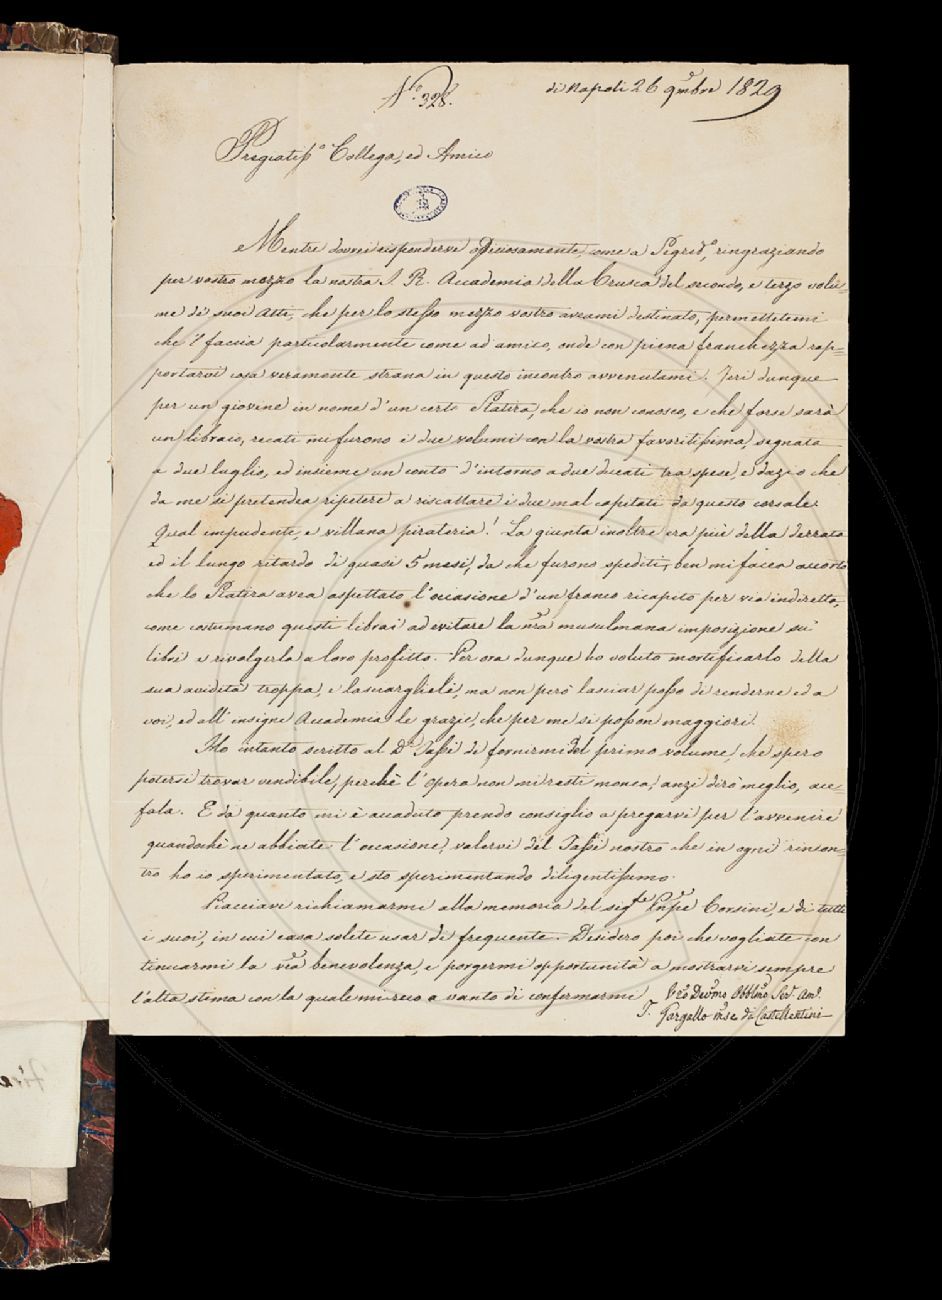 N.º 328.
di Napoli 26 9mbre 1829
Pregiatisso Collega, ed Amico
Mentre dovrei rispondervi officiosamente, come a Segredo, ringraziando
per vostro mezzo la nostra I. R. Accademia della Crusca del secondo, e terzo volu=
me de' suoi Atti, che per lo stesso mezzo vostro aveami destinato, permettetemi
che 'l faccia particolarmente come ad amico, onde con piena franchezza rap=
portarvi cosa veramente strana in questo incontro avvenutami. Jeri dunque
per un giovine in nome d'un certo Platira, che io non conosco, e che forse sarà
un libraio, recati mi furono i due volumi con la vostra favoritissima, segnata
a due luglio, ed insieme un conto d'intorno a due ducati tra spese, e dazio che
da me si pretendea ripetere a riscattare i due mal capitati da questo corsale.
Qual impudente, e villana pirateria! La giunta inoltre era più della derrata
ed il lungo ritardo di quasi 5 mesi, da che furono spediti, ben mi facea accorto
che lo Platira avea aspettato l'occasione d'un franco ricapito per via indiretta,
come costumano questi librai ad evitare la nra musulmana imposizione su'
libri e rivolgerla a loro profitto. Per ora dunque ho voluto mortificarlo della
sua avidità troppa, e lasciarglieli, ma non però lasciar posso di renderne ed a
voi, ed all'insigne Accademia le grazie, che per me si posson maggiori.
Ho intanto scritto al Dr Tassi di fornirmi del primo volume, che spero
potersi trovar vendibile, perchè l'opera non mi resti monca, anzi dirò meglio, ace
fala. E da quanto mi è accaduto prendo consiglio a pregarvi per l'avvenire
quandochè ne abbiate l'occasione, valervi del Tassi nostro che in ogni rincon=
tro ho io sperimentato, e sto sperimentando diligentissimo.
Piacciavi richiamarmi alla memoria del sigre Pnpe Corsini, e di tutti
i suoi, in cui casa solete usar di frequente. Desidero poi che vogliate con
tinuarmi la vra benevolenza, e porgermi opportunità a mostrarvi sempre
l'alta stima con la quale mi reco a vanto di confermarmi Vro Devmo Obblmo Ser. Am.
T. Gargallo mse di Castellentini